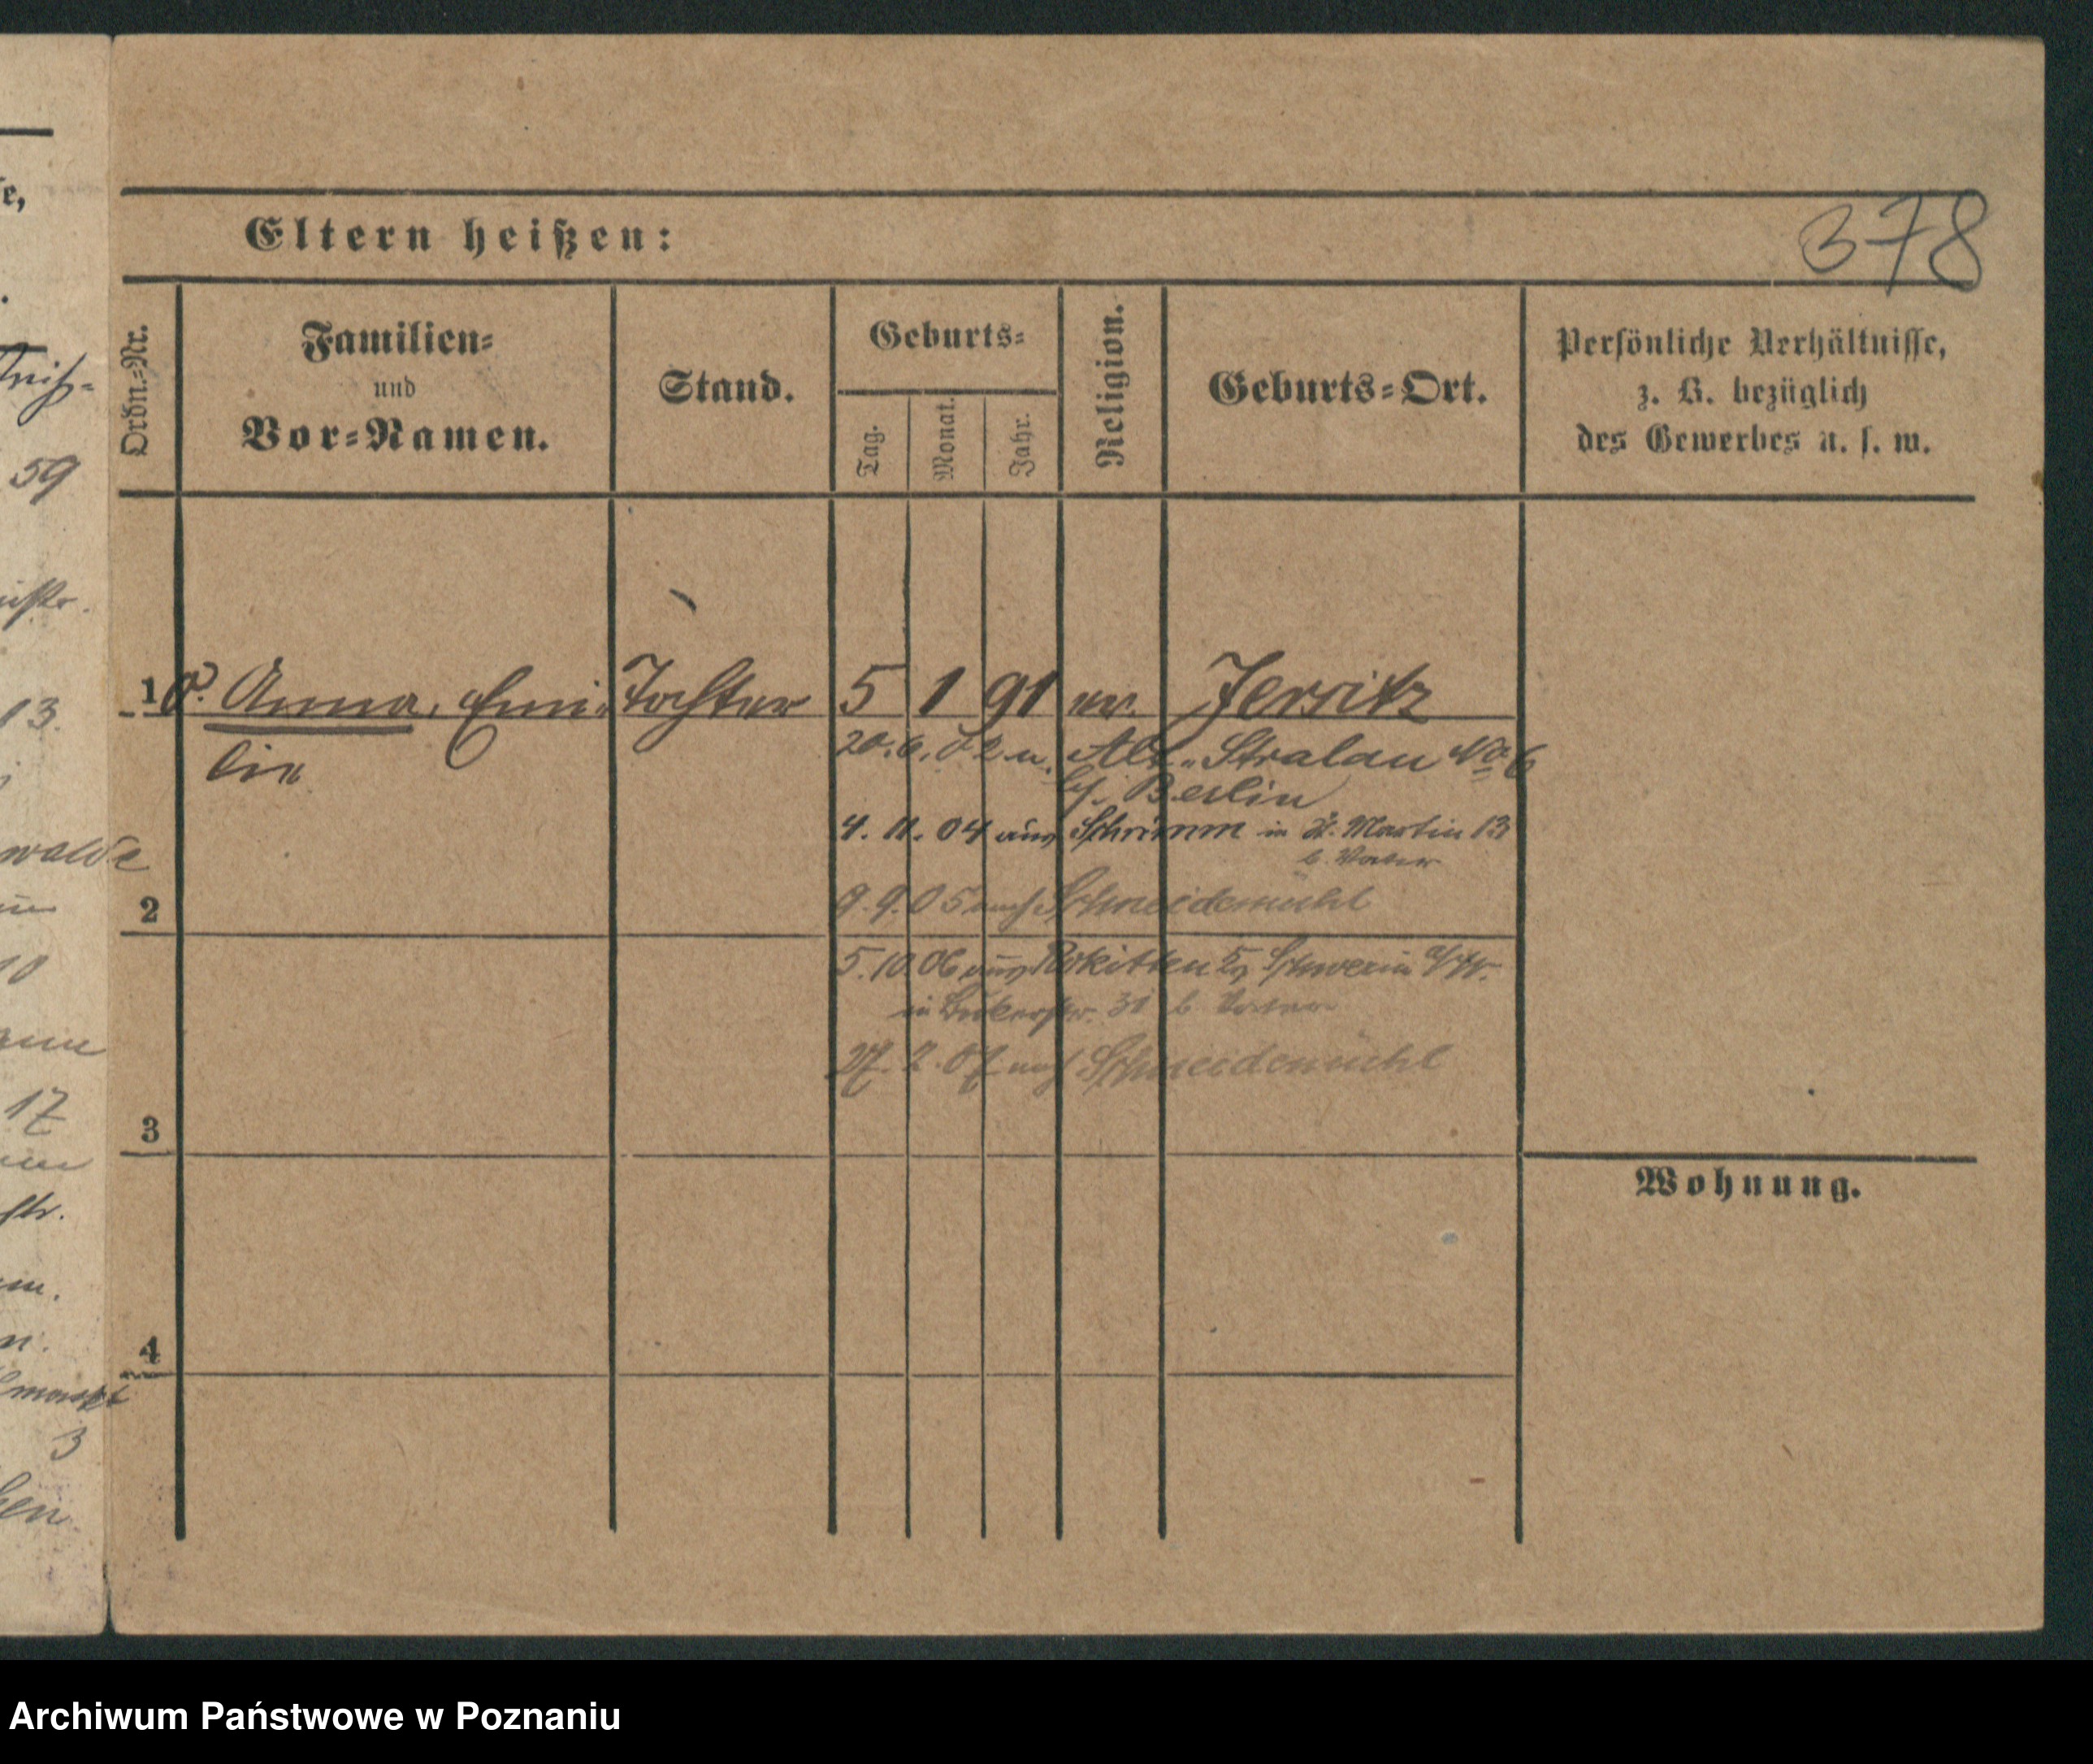 378
Eltern heißen:
Ordn.=Nr.
Familien=
und
Vor=Namen.
Stand.
Geburts=
Tag.
Monat.
Jahr.
Religion.
Geburts=Ort.
Persönliche Verhältnisse,
z. B. bezüglich
des Gewerbes u. s. w.
59
1 Anna, Emi= Tochter 5 1 91 ev. Jersitz
lie
20. 6. 02 n. Alt=Stralau No 6
bei Berlin
13.
4. 11. 04 aus Schrimm in St. Martin 13
b. Vater
walde
2
9. 9. 05 nach Schneidemühl
5. 10. 06 aus Rokitten Schwerin a/W.
in 31 b. Vater
27. 2. 07 nach Schneidemühl
17
3
Wohnung.
str.
4
markt
3
Archiwum Państwowe w Poznaniu